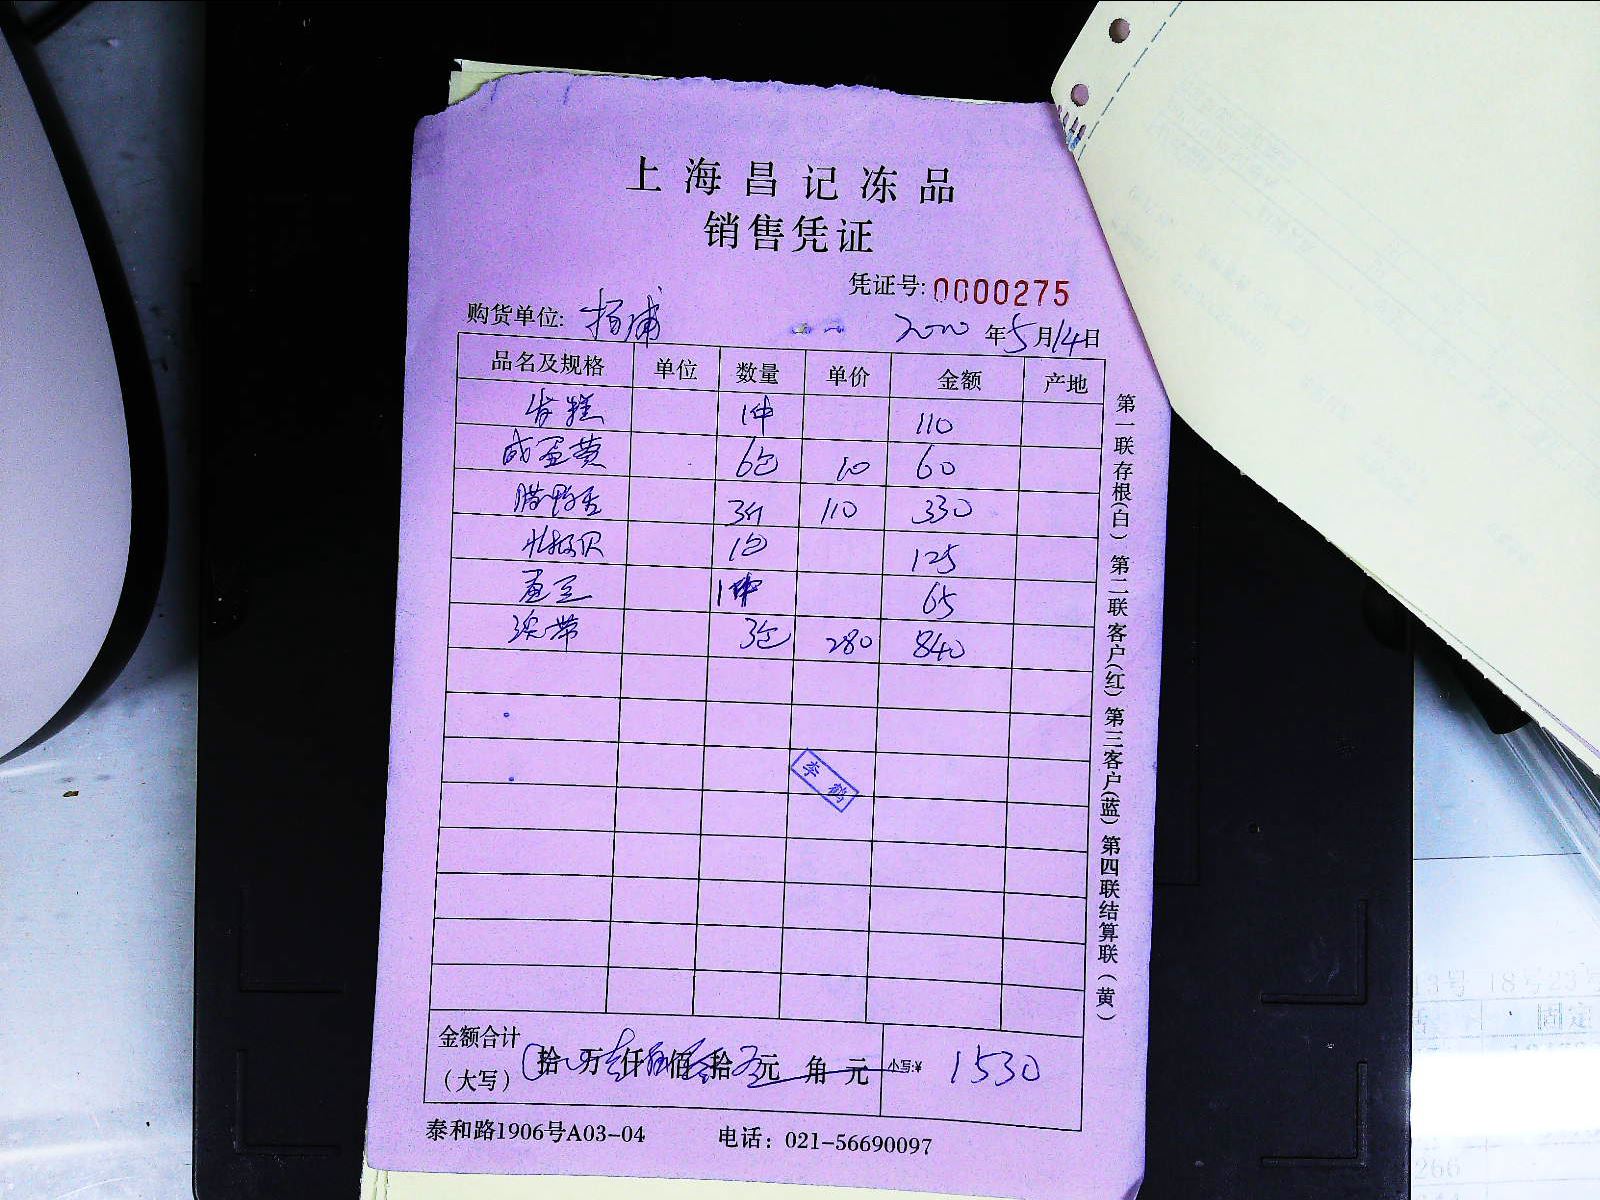 上海昌记冻品
销售凭证
凭证号: 0000275
购货单位: 杨浦 2020年5月14日
品名及规格 单位 数量 单价 金额 产地
发糕 1件 110
咸蛋黄 6包 10 60
腊鸭舌 3斤 110 330
北极贝 1包 125
蚕豆 1件 65
3包 280 840
李 鹤
金额合计
(大写) 拾 万 仟 佰 拾 元 角 元 小写:¥ 1530
泰和路1906号A03-04 电话: 021-56690097
第一联存根(白) 第二联客户(红) 第三客户(蓝) 第四联结算联(黄)
13号 18号23号
固定
266